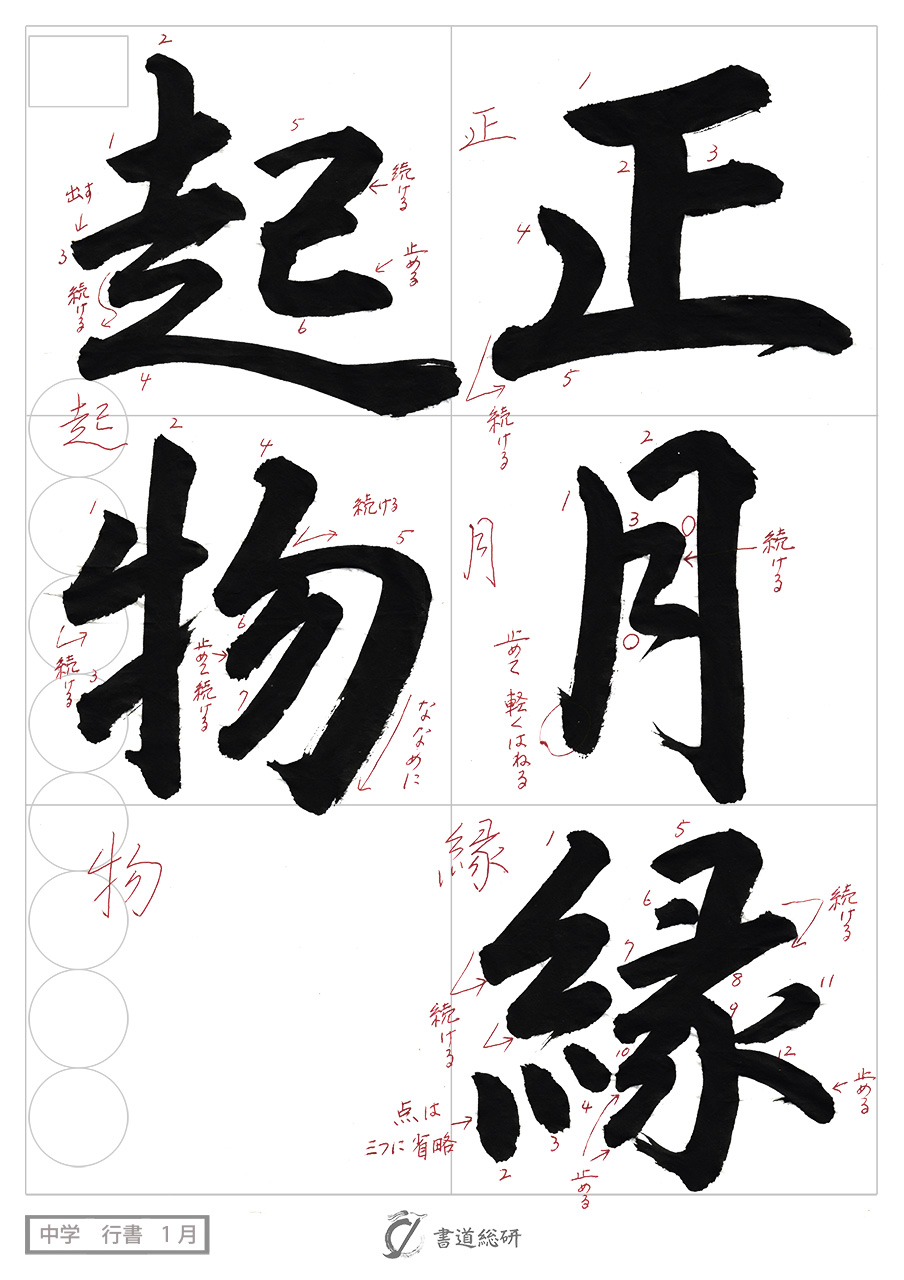 正月縁
起物
正
1
2
3
4
5
続ける
月
1
2
3
続ける
止めて軽くはねる
縁
1
5
6
7
8
9
10
11
12
4
3
2
続ける
続ける
止める
止める
点は
三つに省略
起
1
2
3
4
5
6
出す
続ける
続ける
止める
物
1
2
3
4
5
6
7
続ける
続ける
止めて続ける
ななめに
中学 行書 1月
書道総研